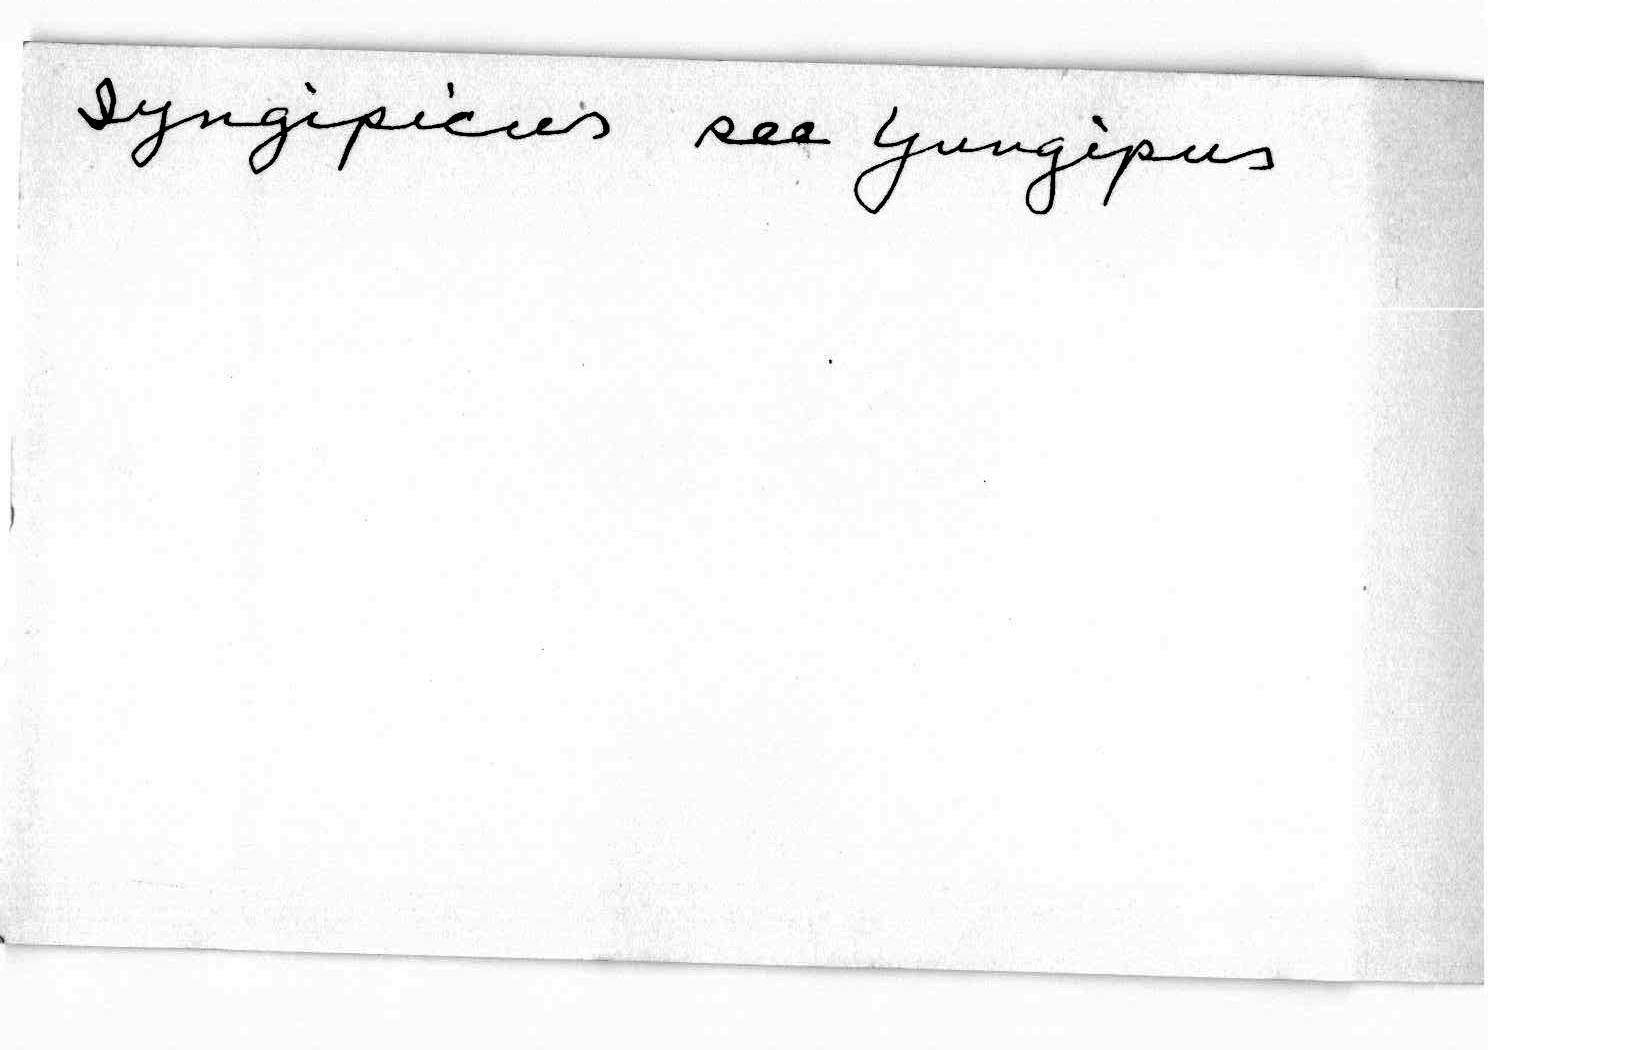 Iyngipicus see Yungipus